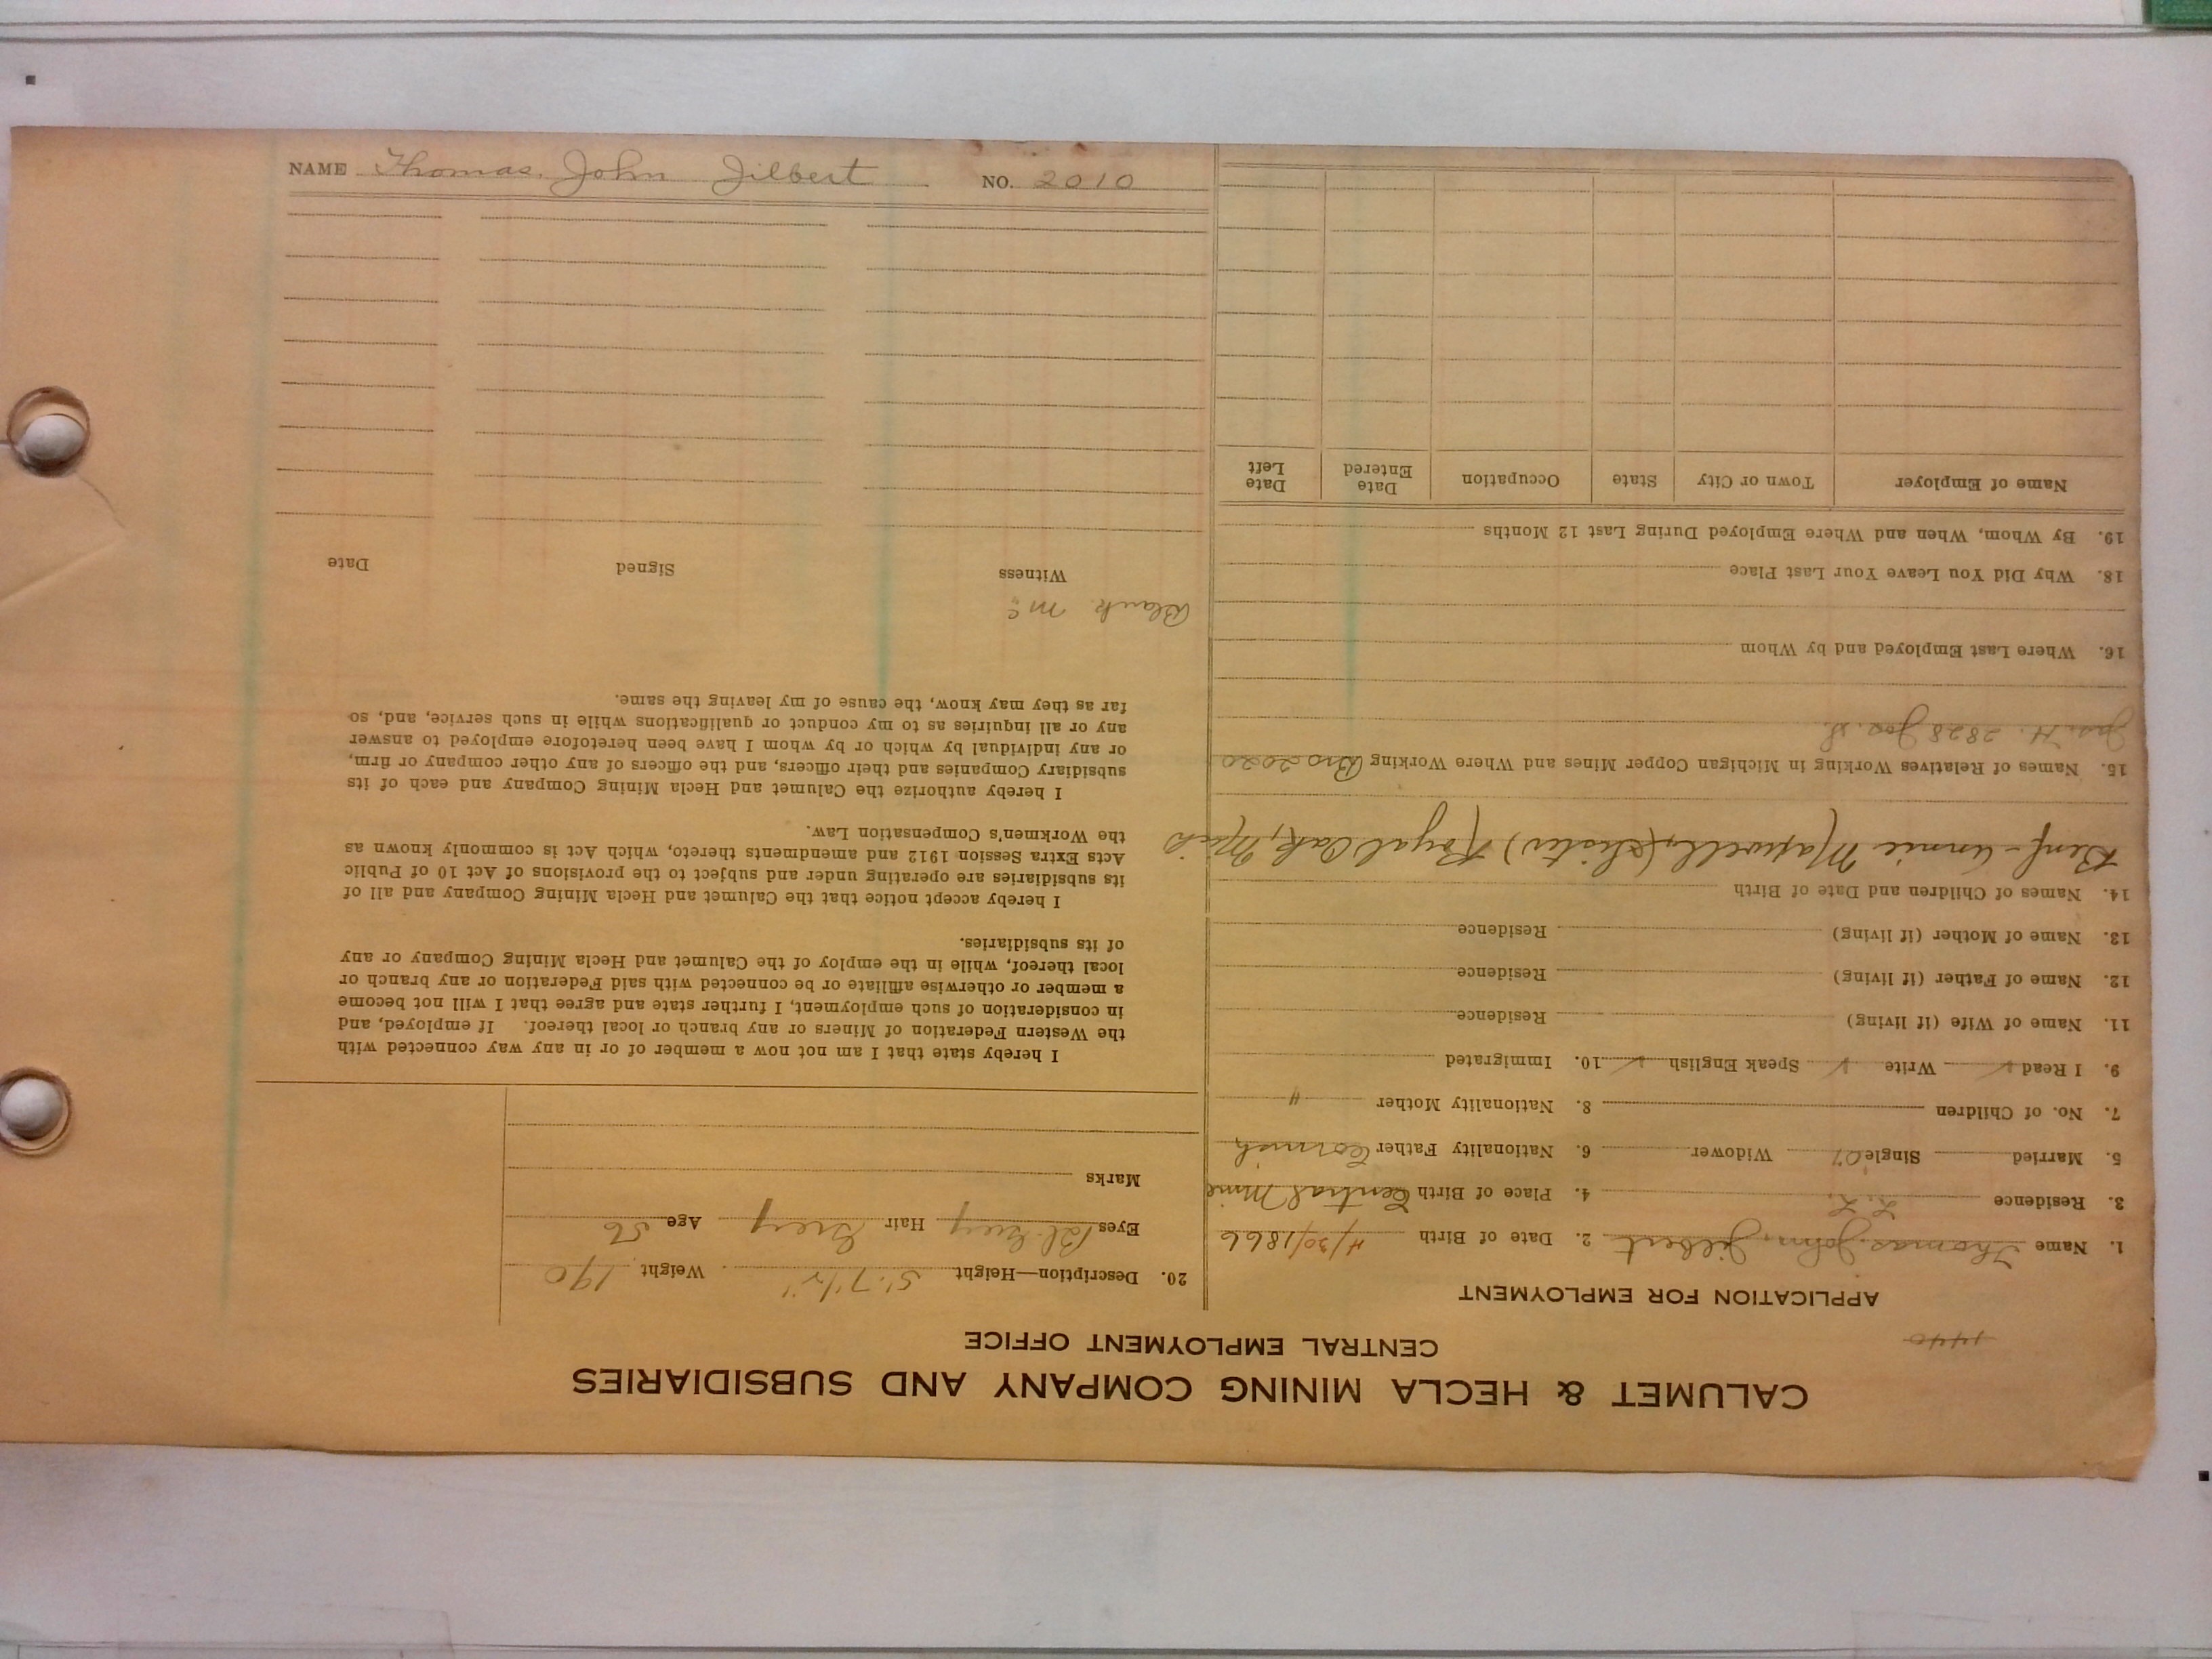 CALUMET & HECLA MINING COMPANY AND SUBSIDIARIES
CENTRAL EMPLOYMENT OFFICE
1440
APPLICATION FOR EMPLOYMENT
1. Name Thomas. John, Jilbert 2. Date of Birth 4/30/1866
3. Residence L. L. 4. Place of Birth Central Mine
5. Married Single Widower 6. Nationality Father Cornish
7. No. of Children 8. Nationality Mother "
9. I Read ✓ Write ✓ Speak English ✓ 10. Immigrated
11. Name of Wife (if living) Residence
12. Name of Father (if living) Residence
13. Name of Mother (if living) Residence
14. Names of Children and Date of Birth
Benf - Annie Maxwell, (sister) Royal Oak, Mich
15. Names of Relatives Working in Michigan Copper Mines and Where Working Bro 2020
Jas. H. 2828 Jos. S.
16. Where Last Employed and by Whom
18. Why Did You Leave Your Last Place
19. By Whom, When and Where Employed During Last 12 Months
Name of Employer Town or City State Occupation Date Entered Date Left
20. Description—Height 5' 7 1/2" Weight 190
Eyes Bl. Grey Hair Grey Age 56
Marks
I hereby state that I am not now a member of or in any way connected with
the Western Federation of Miners or any branch or local thereof. If employed, and
in consideration of such employment, I further state and agree that I will not become
a member or otherwise affiliate or be connected with said Federation or any branch or
local thereof, while in the employ of the Calumet and Hecla Mining Company or any
of its subsidiaries.
I hereby accept notice that the Calumet and Hecla Mining Company and all of
its subsidiaries are operating under and subject to the provisions of Act 10 of Public
Acts Extra Session 1912 and amendments thereto, which Act is commonly known as
the Workmen's Compensation Law.
I hereby authorize the Calumet and Hecla Mining Company and each of its
subsidiary Companies and their officers, and the officers of any other company or firm,
or any individual by which or by whom I have been heretofore employed to answer
any or all inquiries as to my conduct or qualifications while in such service, and, so
far as they may know, the cause of my leaving the same.
Blank Mc
Witness Signed Date
NAME Thomas. John Jilbert NO. 2010